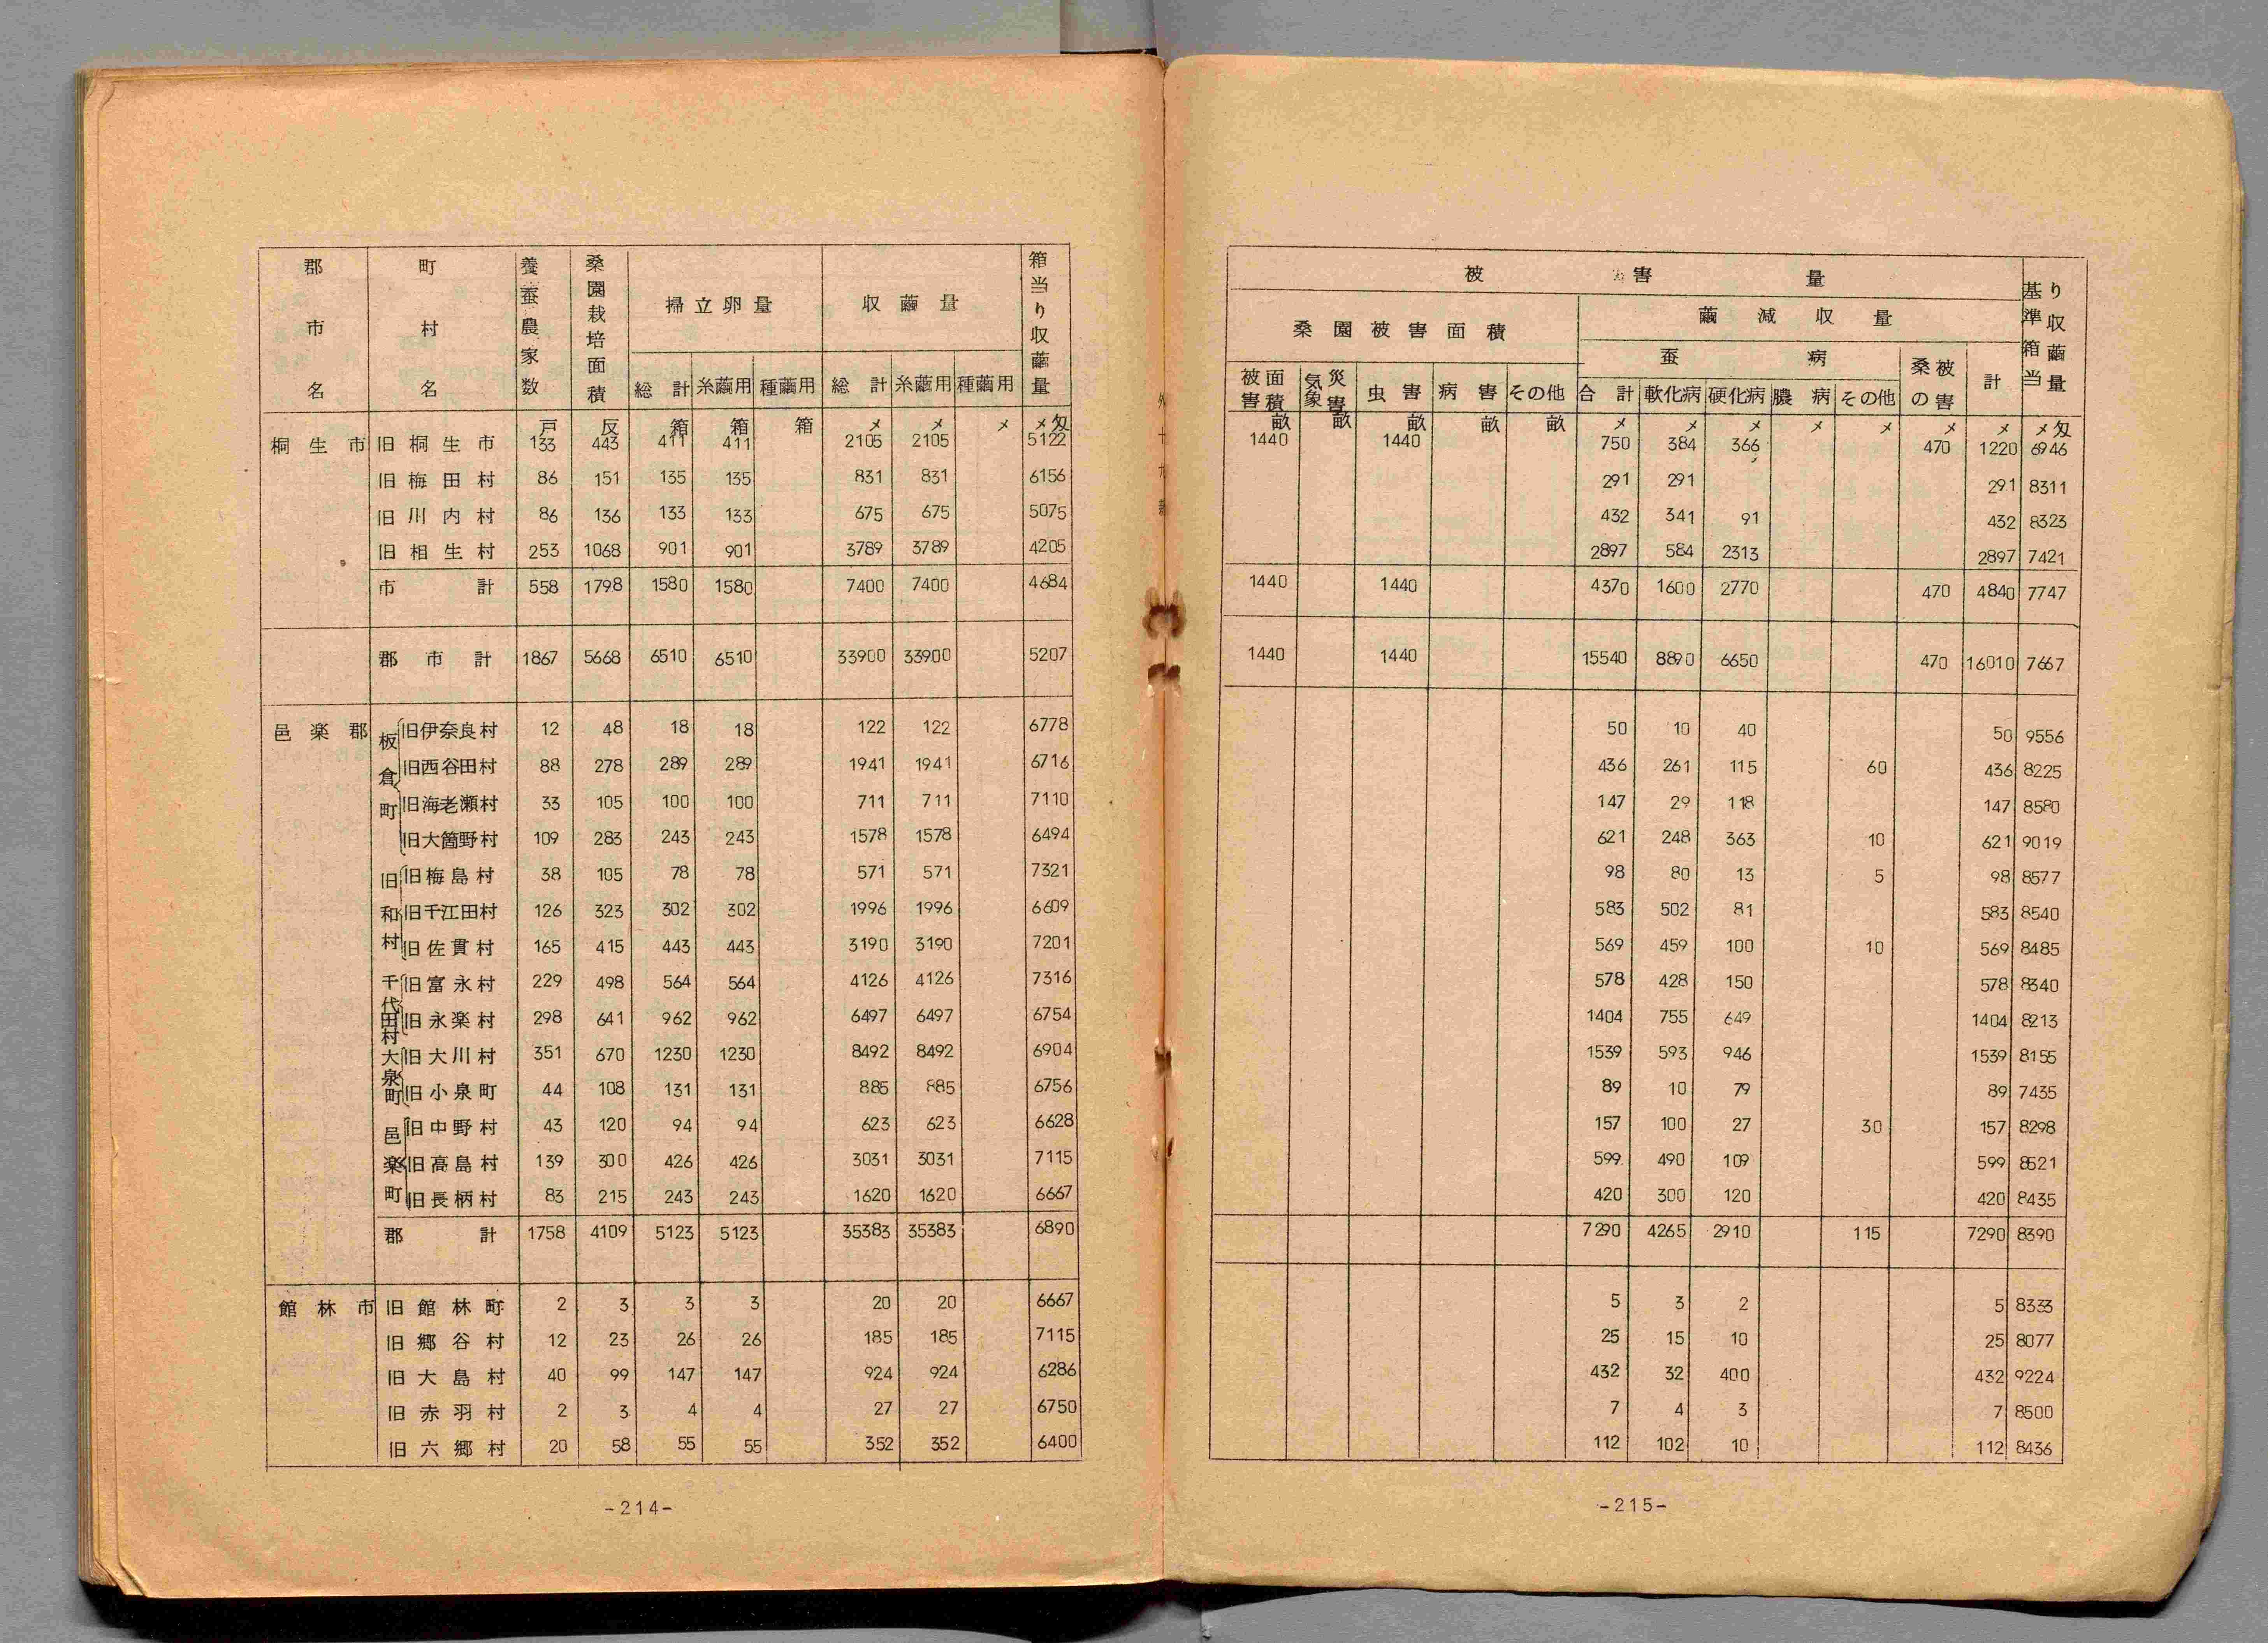 郡市名 町村名 養蚕農家数 桑園栽培面積 掃立卵量 収繭量 箱当り収繭量
総計 糸繭用 種繭用 総計 糸繭用 種繭用
戸 反 箱 箱 箱 メ メ メ メ匁
桐生市 旧桐生市 133 443 411 411 2105 2105 5122
旧梅田村 86 151 135 135 831 831 6156
旧川内村 86 136 133 133 675 675 5075
旧相生村 253 1068 901 901 3789 3789 4205
市計 558 1798 1580 1580 7400 7400 4684
郡市計 1867 5668 6510 6510 33900 33900 5207
邑楽郡 板倉町 旧伊奈良村 12 48 18 18 122 122 6778
旧西谷田村 88 278 289 289 1941 1941 6716
旧海老瀬村 33 105 100 100 711 711 7110
旧大箇野村 109 283 243 243 1578 1578 6494
旧和村 旧梅島村 38 105 78 78 571 571 7321
旧千江田村 126 323 302 302 1996 1996 6609
旧佐貫村 165 415 443 443 3190 3190 7201
千代田村 旧富永村 229 498 564 564 4126 4126 7316
旧永楽村 298 641 962 962 6497 6497 6754
大泉町 旧大川村 351 670 1230 1230 8492 8492 6904
旧小泉町 44 108 131 131 885 885 6756
邑楽町 旧中野村 43 120 94 94 623 623 6628
旧高島村 139 300 426 426 3031 3031 7115
旧長柄村 83 215 243 243 1620 1620 6667
郡計 1758 4109 5123 5123 35383 35383 6890
館林市 旧館林町 2 3 3 3 20 20 6667
旧郷谷村 12 23 26 26 185 185 7115
旧大島村 40 99 147 147 924 924 6286
旧赤羽村 2 3 4 4 27 27 6750
旧六郷村 20 58 55 55 352 352 6400
-214-
被害量 基準箱当り収繭量
桑園被害面積 繭減収量
蚕病 桑の被害 計
被害面積 気象災害 虫害 病害 その他 合計 軟化病 硬化病 膿病 その他
畝 畝 畝 畝 畝 メ メ メ メ メ メ メ メ匁
1440 1440 750 384 366 470 1220 6946
291 291 291 8311
432 341 91 432 8323
2897 584 2313 2897 7421
1440 1440 4370 1600 2770 470 4840 7747
1440 1440 15540 8890 6650 470 16010 7667
50 10 40 50 9556
436 261 115 60 436 8225
147 29 118 147 8580
621 248 363 10 621 9019
98 80 13 5 98 8577
583 502 81 583 8540
569 459 100 10 569 8485
578 428 150 578 8340
1404 755 649 1404 8213
1539 593 946 1539 8155
89 10 79 89 7435
157 100 27 30 157 8298
599 490 109 599 8521
420 300 120 420 8435
7290 4265 2910 115 7290 8390
5 3 2 5 8333
25 15 10 25 8077
432 32 400 432 9224
7 4 3 7 8500
112 102 10 112 8436
-215-